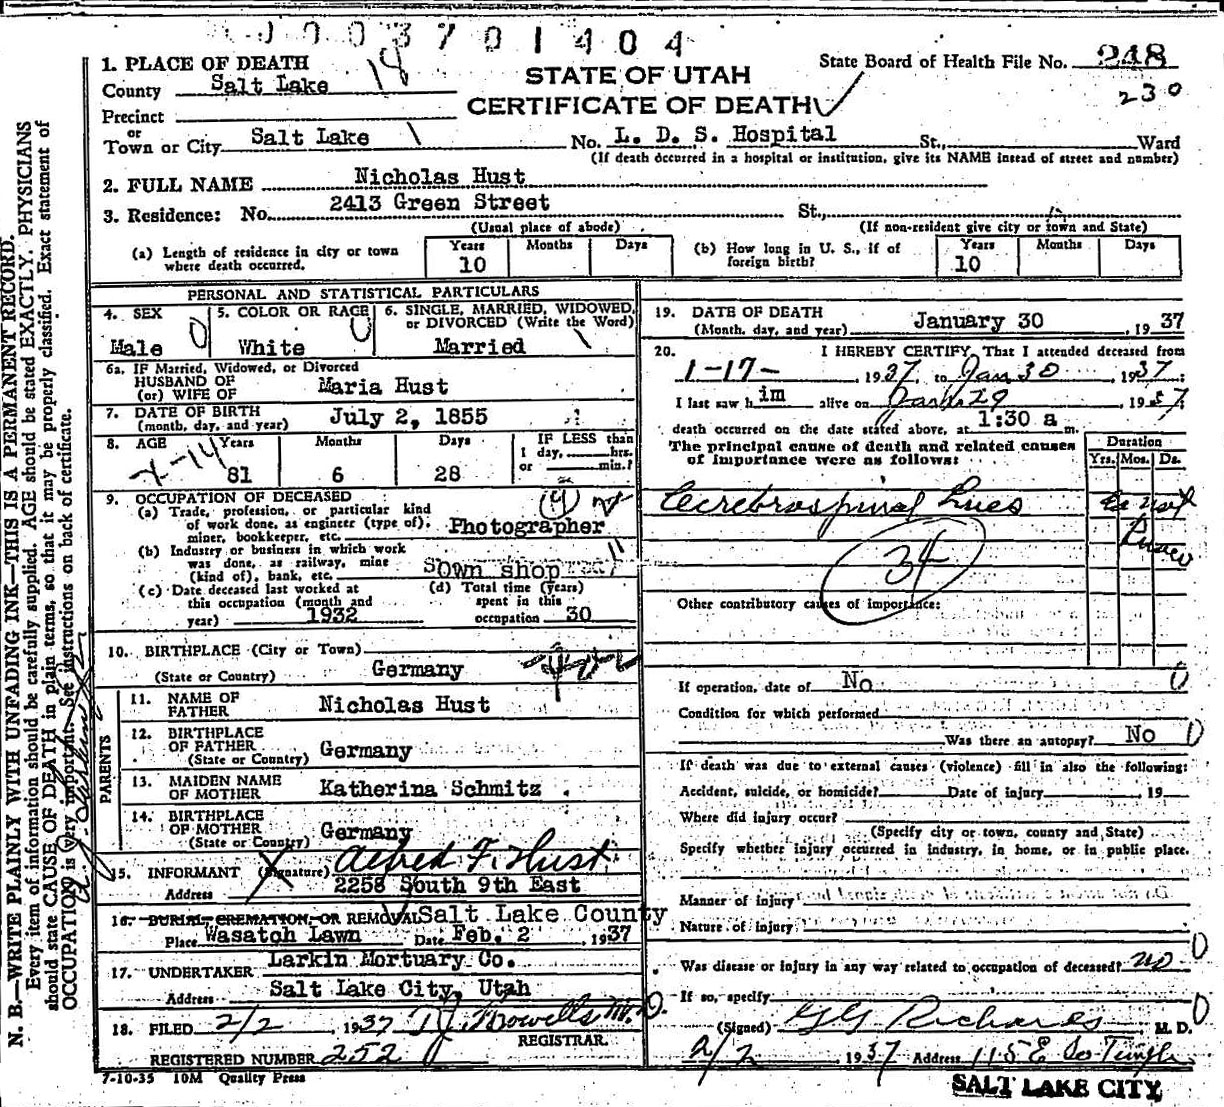 1003701404
1. PLACE OF DEATH
County Salt Lake 18
STATE OF UTAH
State Board of Health File No. 248
CERTIFICATE OF DEATH
230
Precinct
or
Town or City Salt Lake No. L. D. S. Hospital St., Ward
(If death occurred in a hospital or institution, give its NAME instead of street and number)
2. FULL NAME Nicholas Hust
3. Residence: No. 2413 Green Street St.,
(Usual place of abode) (If non-resident give city or town and State)
(a) Length of residence in city or town where death occurred. Years 10 Months Days
(b) How long in U. S., if of foreign birth? Years 10 Months Days
PERSONAL AND STATISTICAL PARTICULARS
4. SEX Male
5. COLOR OR RACE White
6. SINGLE, MARRIED, WIDOWED, or DIVORCED (Write the Word) Married
6a. IF Married, Widowed, or Divorced
HUSBAND OF
(or) WIFE OF Maria Hust
7. DATE OF BIRTH
(month, day, and year) July 2, 1855
8. AGE Years Months Days IF LESS than
1 day, hrs.
or min.?
81 6 28
9. OCCUPATION OF DECEASED
(a) Trade, profession, or particular kind
of work done, as engineer (type of),
miner, bookkeeper, etc. Photographer
(b) Industry or business in which work
was done, as railway, mine
(kind of), bank, etc. Own shop
(c) Date deceased last worked at
this occupation (month and
year) 1932
(d) Total time (years)
spent in this
occupation 30
10. BIRTHPLACE (City or Town)
(State or Country) Germany
PARENTS
11. NAME OF
FATHER Nicholas Hust
12. BIRTHPLACE
OF FATHER
(State or Country) Germany
13. MAIDEN NAME
OF MOTHER Katherina Schmitz
14. BIRTHPLACE
OF MOTHER
(State or Country) Germany
15. INFORMANT (Signature) Alfred F. Hust
Address 2258 South 9th East
16. BURIAL, CREMATION, OR REMOVAL Salt Lake County
Place Wasatch Lawn Date Feb. 2 1937
17. UNDERTAKER Larkin Mortuary Co.
Address Salt Lake City, Utah
18. FILED 2/2, 1937 T J Howells M.D.
REGISTRAR.
REGISTERED NUMBER 252
7-10-35 10M Quality Press
19. DATE OF DEATH
(Month, day, and year) January 30, 1937
20. I HEREBY CERTIFY, That I attended deceased from
1-17-, 1937, to Jan 30, 1937
I last saw him alive on Jan. 29, 1937
death occurred on the date stated above, at 1:30 a m.
The principal cause of death and related causes
of importance were as follows:
Duration
Yrs. Mos. Ds.
Cerebrospinal Lues
34
Other contributory causes of importance:
If operation, date of No 0
Condition for which performed
Was there an autopsy? No 0
If death was due to external causes (violence) fill in also the following:
Accident, suicide, or homicide? Date of injury, 19
Where did injury occur?
(Specify city or town, county and State)
Specify whether injury occurred in industry, in home, or in public place.
Manner of injury
Nature of injury 0
Was disease or injury in any way related to occupation of deceased? no
If so, specify 0
(Signed) G G Richards, M. D.
2/2 1937 Address 115 E So Temple
SALT LAKE CITY
N. B.—WRITE PLAINLY WITH UNFADING INK—THIS IS A PERMANENT RECORD.
Every item of information should be carefully supplied. AGE should be stated EXACTLY. PHYSICIANS
should state CAUSE OF DEATH in plain terms, so that it may be properly classified. Exact statement of
OCCUPATION is very important. See instructions on back of certificate.